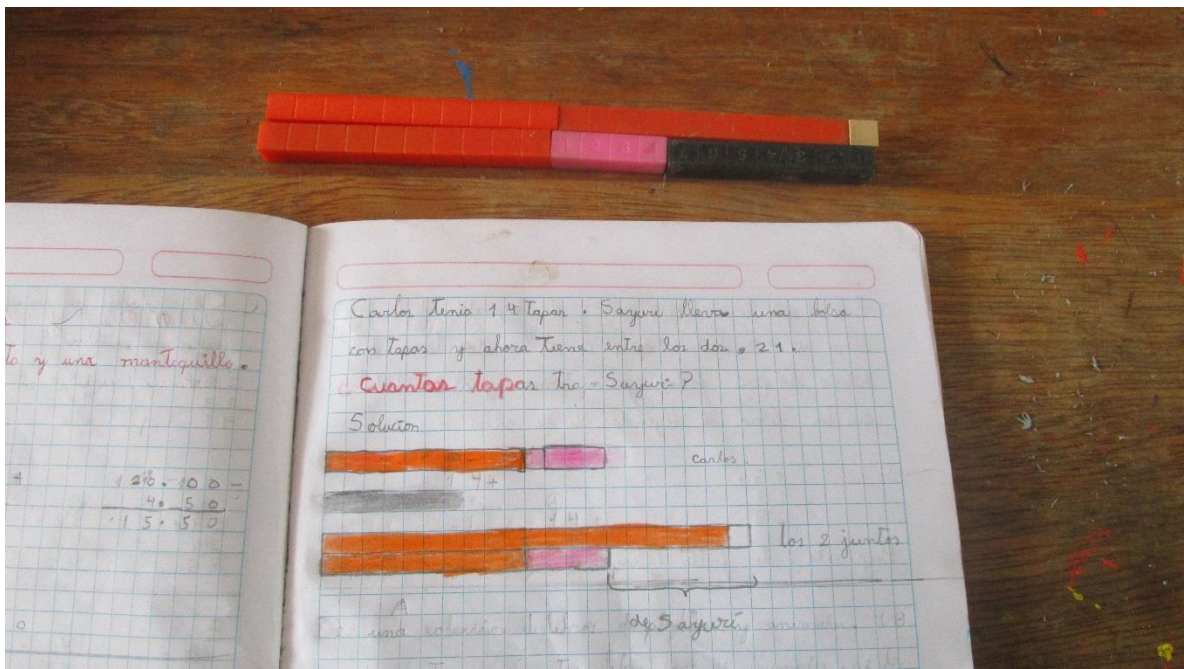 ta y una mantequilla.
126.100-
4.50
15.50
Carlos tenia 14 tapas. Sayuri lleva una bolsa
con tapas y ahora tiene entre los dos. 21.
Cuantas tapas tra-Sayuri?
Solucion
carlos.
14
los 2 juntos
de Sayuri
una